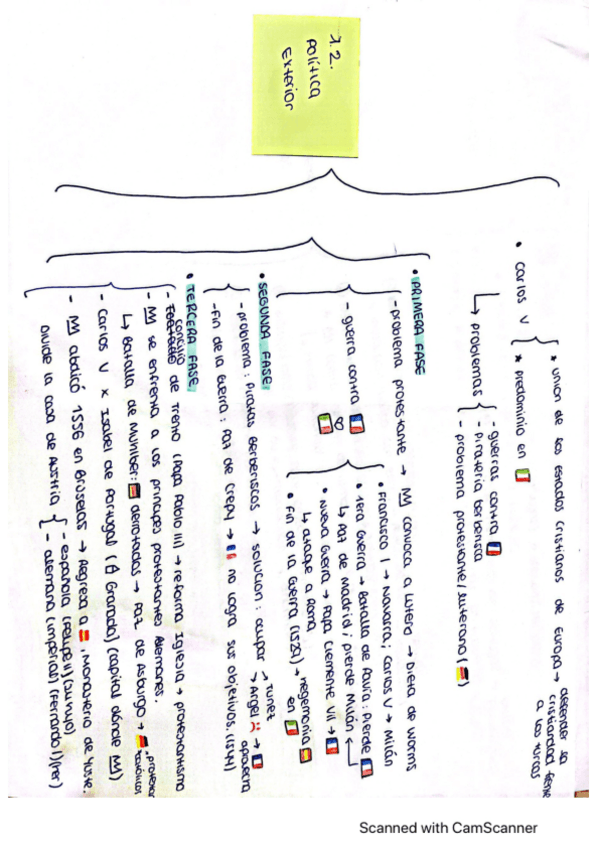 1.2.
Política
Exterior
• Carlos V
* union de los estados cristianos de Europa → defender la cristiandad frente a los turcos
* Predominio en
↳ problemas
- guerras contra
- Piratería berberisca
- problema protestante / luterano ( )
• PRIMERA FASE
- problema protestante → M convoca a Lutero → Dieta de Worms
- guerra contra
• Francisco I → Navarra; Carlos V → Milán
• 1era Guerra → Batalla de Pavía: Pierde
↳ Paz de Madrid; pierde Milán
• Nueva Guerra → Papa Clemente VII →
↳ ataque a Roma
• Fin de la Guerra (1529) → Hegemonía en
• SEGUNDA FASE
- problema: Piratas Berberiscos → solución: ocupar → Tunez
→ Argel :( → apoyara
- Fin de la Guerra: Paz de Crepy → no logra sus objetivos. (1544)
• TERCERA FASE
- Concilio de Trento (Papa Pablo III) → reforma Iglesia → protestantismo
- M se enfrenta a los príncipes protestantes Alemanes.
↳ Batalla de Mulhber: derrotados → Paz de Asburgo →
- Carlos V x Isabel de Portugal (Granada) (capital dónde M)
- M abdicó 1556 en Bruselas → Regresa a , Monasterio de Yuste.
Divide la casa de Austria
- española (Felipe II)
- alemana (imperial) (Fernando I)
Scanned with CamScanner